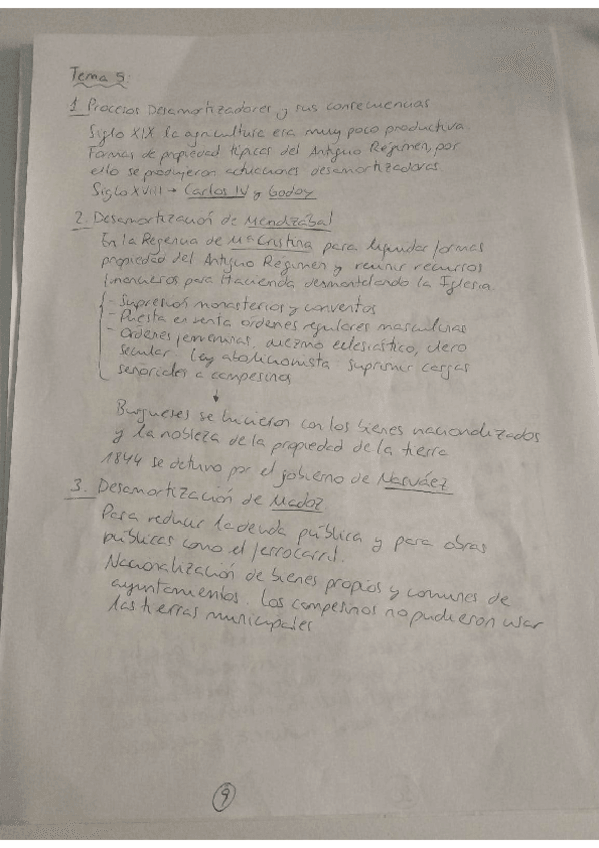 Tema 5:
1 Procesos Desamortizadores y sus consecuencias
Siglo XIX la agricultura era muy poco productiva.
Formas de propiedad típicas del Antiguo Régimen, por
ello se produjeron actuaciones desamortizadoras
Siglo XVIII → Carlos IV y Godoy
2. Desamortización de Mendizábal
En la Regencia de Mª Cristina para liquidar formas
propiedad del Antiguo Régimen y reunir recursos
financieros para Hacienda desmantelando la Iglesia.
- Supresión monasterios y conventos
- Puesta en venta órdenes regulares masculinas
- Ordenes femeninas, diezmo eclesiástico, clero
secular. Ley abolicionista: suprimir cargas
señoriales a campesinos
↓
Burgueses se hicieron con los bienes nacionalizados
y la nobleza de la propiedad de la tierra
1844 se detuvo por el gobierno de Narváez
3. Desamortización de Madoz
Para reducir la deuda pública y para obras
públicas como el ferrocarril.
Nacionalización de bienes propios y comunes de
ayuntamientos. Los campesinos no pudieron usar
las tierras municipales
9